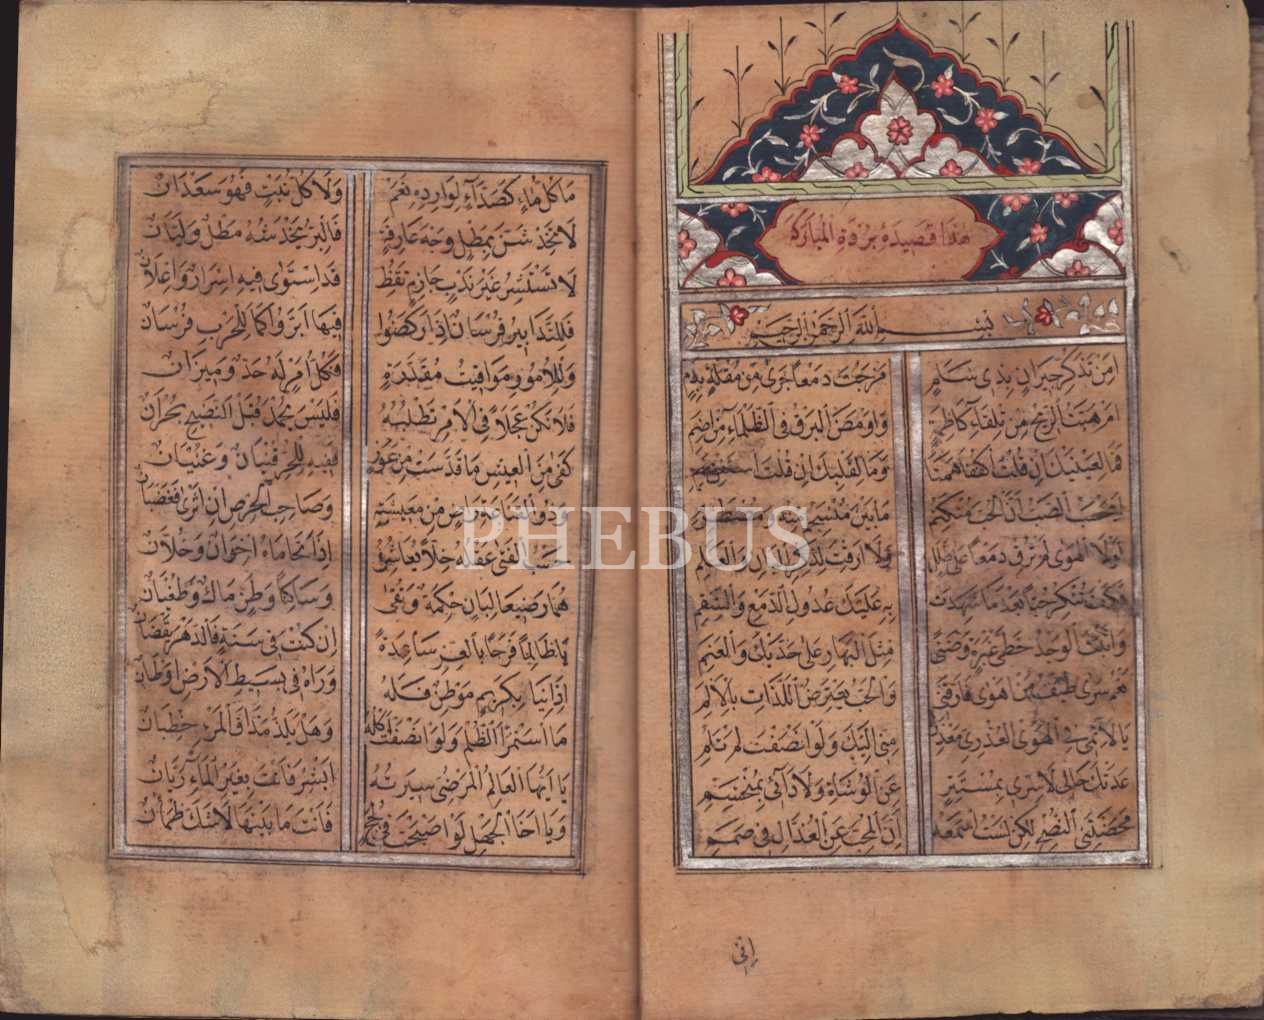 هذا قصيده برؤة المباركة
بسم الله الرحمن الرحيم
امن تذكر جيران بذي سلم مزجت دمعا جرى من مقلة بدم
ام هبت الريح من تلقاء كاظمة واومض البرق في الظلماء من اضم
فما لعينيك ان قلت اكففا همتا وما لقلبك ان قلت استفق يهم
ايحسب الصب ان الحب منكتم ما بين منسجم منه ومضطرم
لولا الهوى لم ترق دمعا على طلل ولا ارقت لذكر البان والعلم
فكيف تنكر حبا بعد ما شهدت به عليك عدول الدمع والسقم
واثبت الوجد خطي عبرة وضنى مثل البهار على خديك والعنم
نعم سرى طيف من اهوى فارقني والحب يعترض اللذات بالالم
يا لائمي في الهوى العذري معذرة مني اليك ولو انصفت لم تلم
عدتك حالي لا سري بمستتر عن الوشاة ولا دائي بمنحسم
محضتني النصح لكن لست اسمعه ان المحب عن العذال في صمم
اني
ما كل ماء كصداء لوارده نعم ولا كل نبت فهو سعدان
لا تخدشن بمطل وجه عارفة فالبر يخدشه مطل وليان
لا تستشر غير ندب حازم يقظ قد استوى فيه اسرار واعلان
فللتدابير فرسان اذا ركضوا فيها ابروا كما للحرب فرسان
وللامور مواقيت مقدرة وكل امر له حد وميزان
فلا تكن عجلا في الامر تطلبه فليس يحمد قبل النضج بحران
كفى من العيش ما قد سد من عوز ففيه للحر قنيان وغنيان
وذو القناعة راض من معيشته وصاحب الحرص ان اثرى فغضبان
حسب الفتى عقله خلا يعاشره اذا تحاماه اخوان وخلان
هما رضيعا لبان حكمة وتقى وساكنا وطن مال وطغيان
يا ظالما فرحا بالعز ساعده ان كنت في سنة فالدهر يقظان
اذا نبا بكريم موطن فله وراه في بسيط الارض اوطان
ما استمرأ الظلم ولو انصفت اكله وهل يلذ مذاق المرء خطبان
يا ايها العالم المرضي سيرته ابشر فانت بغير الماء ريان
ويا اخا الجهل لو اصبحت في لجج فانت ما بينها لا شك ظمأن
PHEBUS